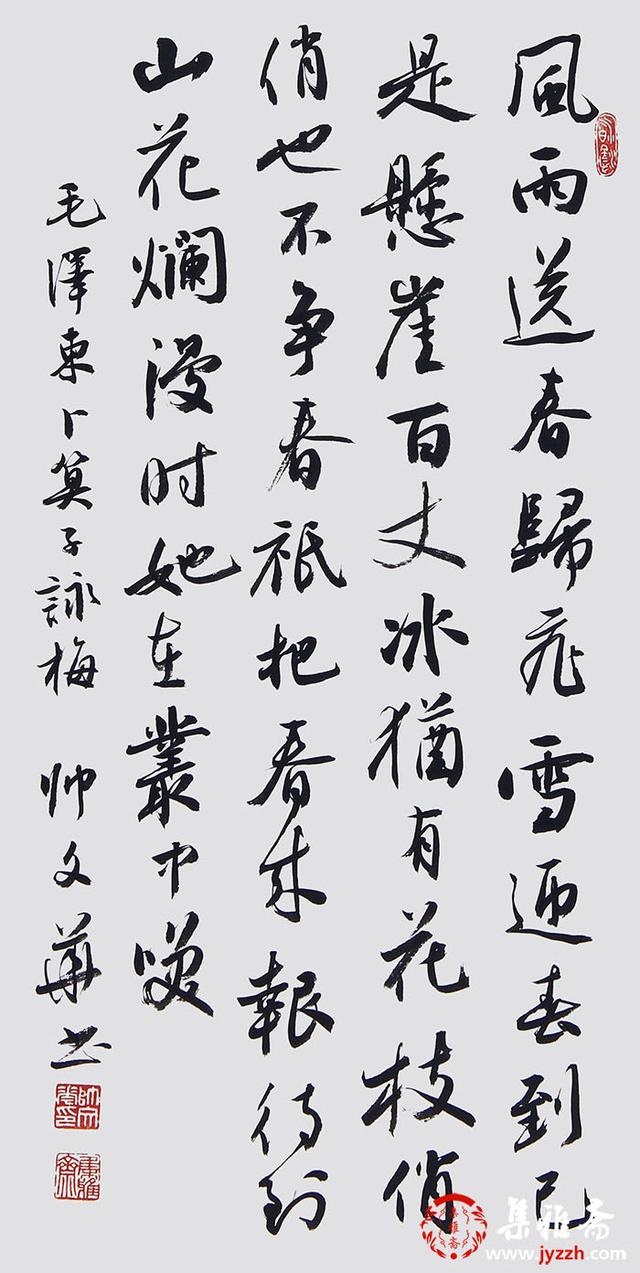 風雨送春歸飛雪迎春到已
是懸崖百丈冰猶有花枝俏
俏也不争春祇把春来報待到
山花爛漫时她在叢中咲
毛澤東卜算子詠梅 帅文華书
集雅斋
www.jyzzh.com